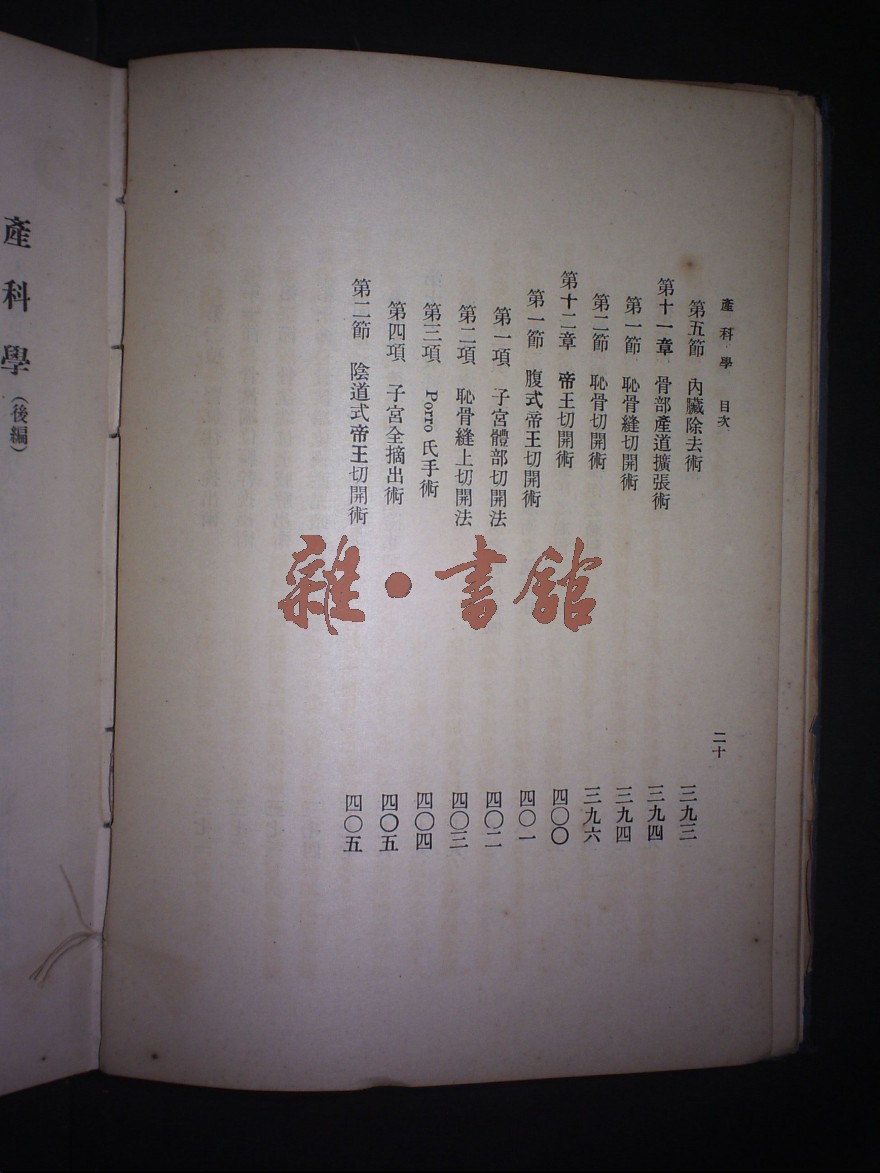 產科學 目次 二十
第五節 內臟除去術 三九三
第十一章 骨部產道擴張術 三九四
第一節 恥骨縫切開術 三九四
第二節 恥骨切開術 三九六
第十二章 帝王切開術 四〇〇
第一節 腹式帝王切開術 四〇一
第一項 子宮體部切開法 四〇二
第二項 恥骨縫上切開法 四〇三
第三項 Porro 氏手術 四〇四
第四項 子宮全摘出術 四〇五
第二節 陰道式帝王切開術 四〇五
產科學(後編)
雜·書館